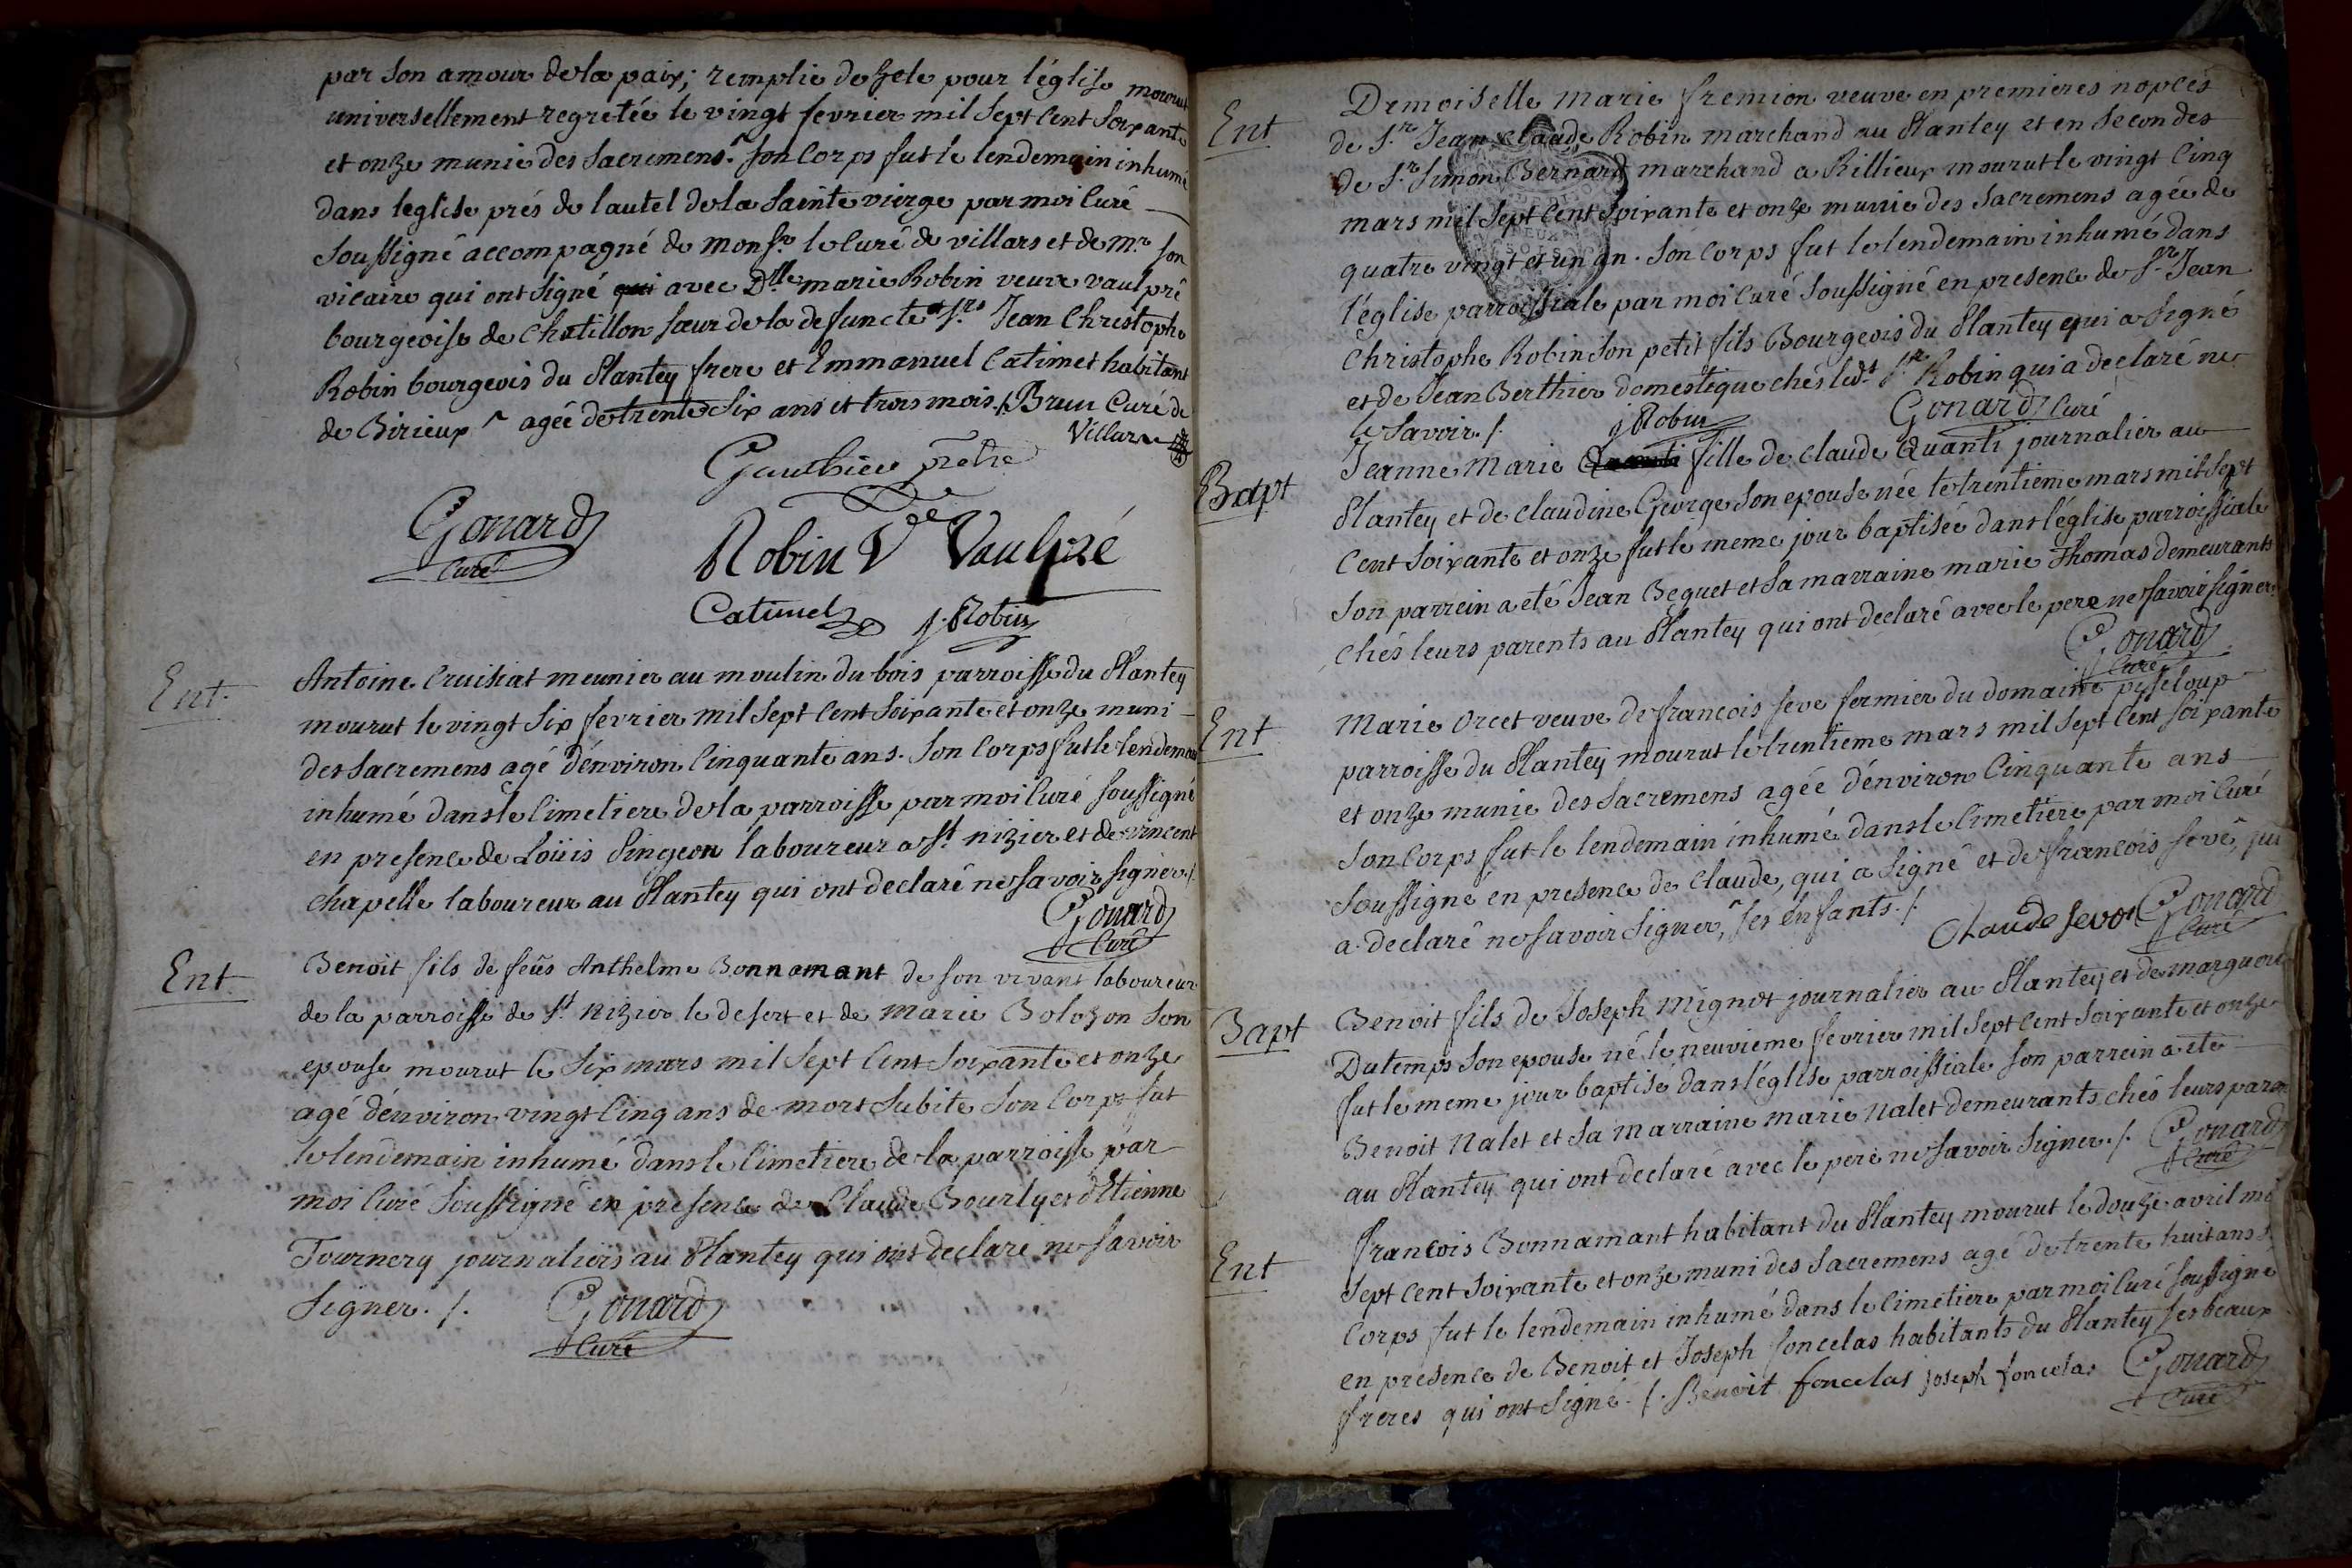 par son amour de la paix; remplie de zele pour l'église mourut
universellement regretée le vingt fevrier mil sept cent soixante
et onze munie des sacremens. son corps fut le lendemain inhumé
dans leglise prés de lautel de la sainte vierge par moi curé
soussigné accompagné de monsr. le curé de villars et de mr. son
vicaire qui ont signé qui avec Dlle marie Robin veuve vaulpré
bourgeoise de chatillon sœur de la defuncte et srs Jean Christophe
Robin bourgeois du Plantey frere et Emmanuel Catimet habitant
de Birieux ^ agée de trente six ans et trois mois ./. Brun Curé de
Villars
Gauthier prêtre
Gonard
curé
Robin Ve Vaulpré
Catimel
j. Robin
Ent.
Antoine Cruisiat meunier au moulin du bois parroisse du Plantey
mourut le vingt six fevrier mil sept cent soixante et onze muni
des sacremens agé d'énviron cinquante ans. son corps fut le lendemain
inhumé dans le cimetiere de la parroisse par moi curé soussigné
en presence de Loüis Pingeon laboureur a st nizier et de vincent
chapelle laboureur au Plantey qui ont declaré ne savoir signer ./.
Gonard
curé
Ent
Benoit fils de feüs Anthelme Bonnamant de son vivant laboureur
de la parroisse de st. nizier le desert et de marie Bolozon son
epouse mourut le six mars mil sept cent soixante et onze
agé d'énviron vingt cinq ans de mort subite son corps fut
le lendemain inhumé dans le cimetiere de la parroisse par
moi curé soussigné en presence de Claude Bourly et d'Etienne
Tournery journaliers au Plantey qui ont declaré ne savoir
signer ./. Gonard
curé
Ent
Demoiselle marie fremion veuve en premieres nopces
de sr. Jean claude Robin marchand au Plantey et en secondes
de sr. Simon Bernard marchand a Rillieux mourut le vingt cinq
mars mil sept cent soixante et onze munie des sacremens agée de
quatre vingt et un an. son corps fut le lendemain inhumé dans
l'église parroissiale par moi curé soussigné en presence de sr Jean
christophe Robin son petit fils Bourgeois du Plantey qui a signé
et de Jean Berthier domestique chés ledt. sr Robin qui a declaré ne
le savoir ./. j Robin Gonard curé
Bapt
Jeanne Marie fille de claude Quanti journalier au
Plantey et de claudine George son epouse née le trentieme mars mil sept
cent soixante et onze fut le meme jour baptisée dans l'église parroissiale
son parrein a eté Jean Beguet et sa marraine marie Thomas demeurants
chés leurs parents au Plantey qui ont declaré avec le pere ne savoir signer.
Gonard
curé
Ent
Marie orcet veuve de francois seve fermier du domaine pisseloup
parroisse du Plantey mourut le trentieme mars mil sept cent soixante
et onze munie des sacremens agée d'énviron cinquante ans
son corps fut le lendemain inhumé dans le cimetiere par moi curé
soussigné en presence de claude, qui a signé et de francois seve, qui
a declaré ne savoir signer, ses énfants ./. Claude Seve Gonard
curé
Bapt
Benoit fils de Joseph mignot journalier au Plantey et de marguerite
Dutemps son epouse né le neuvieme fevrier mil sept cent soixante et onze
fut le meme jour baptisé dans l'église parroissiale son parrein a eté
Benoit nalet et sa marraine marie nalet demeurants chés leurs parents
au Plantey qui ont declaré avec le pere ne savoir signer ./. Gonard
curé
Ent
francois Bonnamant habitant du Plantey mourut le douze avril mil
sept cent soixante et onze muni des sacremens agé de trente huit ans
corps fut le lendemain inhumé dans le cimetiere par moi curé soussigné
en presence de Benoit et Joseph foncelas habitants du Plantey ses beaux
freres qui ont signé ./. Benoit foncelas joseph foncelas Gonard
curé